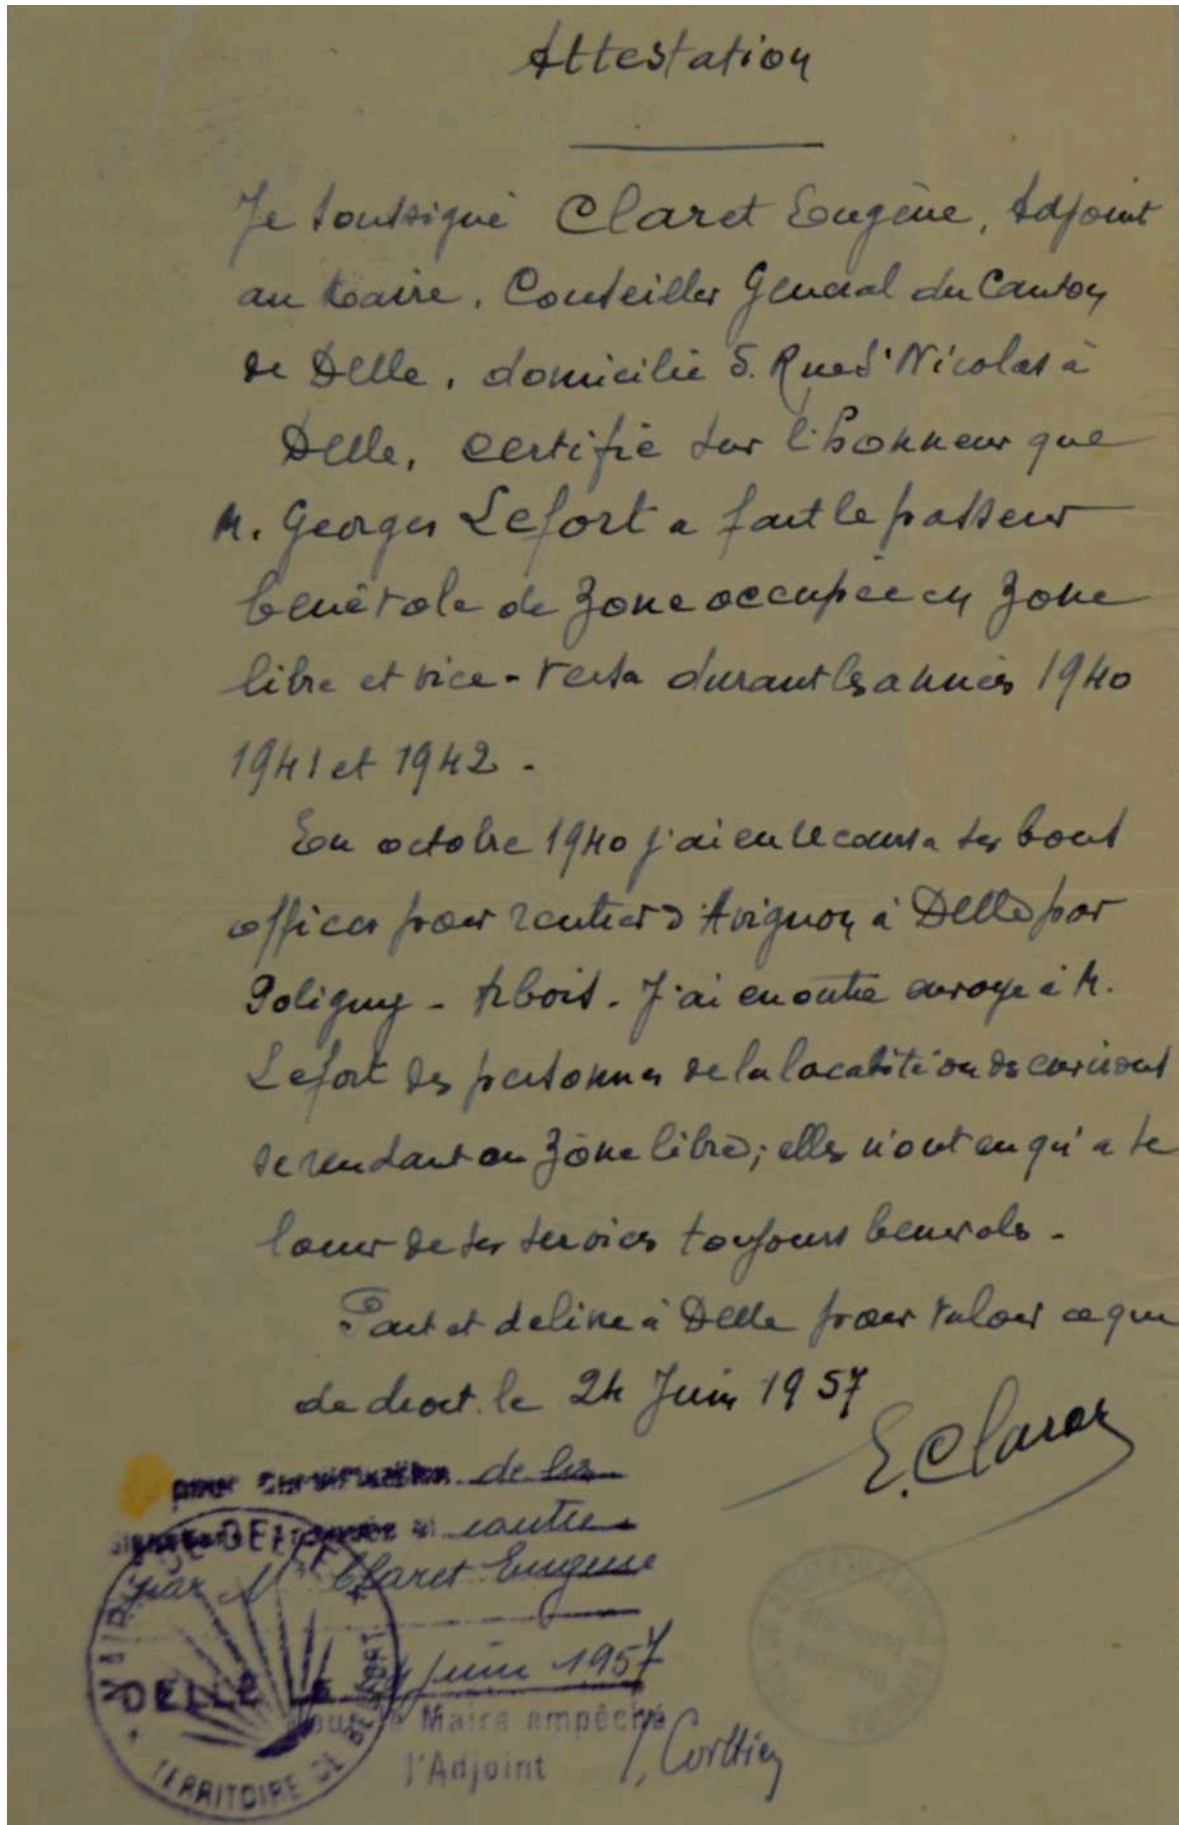 Attestation
Je soussigné Claret Eugène, Adjoint
au Maire, Conseiller Général du Canton
de Delle, domicilié 5. Rue St Nicolas à
Delle, certifie sur l'honneur que
M. Georges Lefort a fait le passeur
bénévole de zone occupée en zone
libre et vice-versa durant les années 1940
1941 et 1942.
En octobre 1940 j'ai eu recours à ses bons
offices pour rentrer d'Avignon à Delle par
Poligny - Arbois. J'ai en outre envoyé à M.
Lefort des personnes de la localité ou des environs
se rendant en zône libre; elles n'ont eu qu'à se
louer de ses services toujours bénévoles.
Fait et délivré à Delle pour valoir ce que
de droit. le 24 Juin 1957
E. Claret
pour de la
contre
par M Claret Eugène
DELLE LE juin 1957
Pour le Maire empêché
l'Adjoint
MAIRIE DE DELLE
TERRITOIRE DE BELFORT